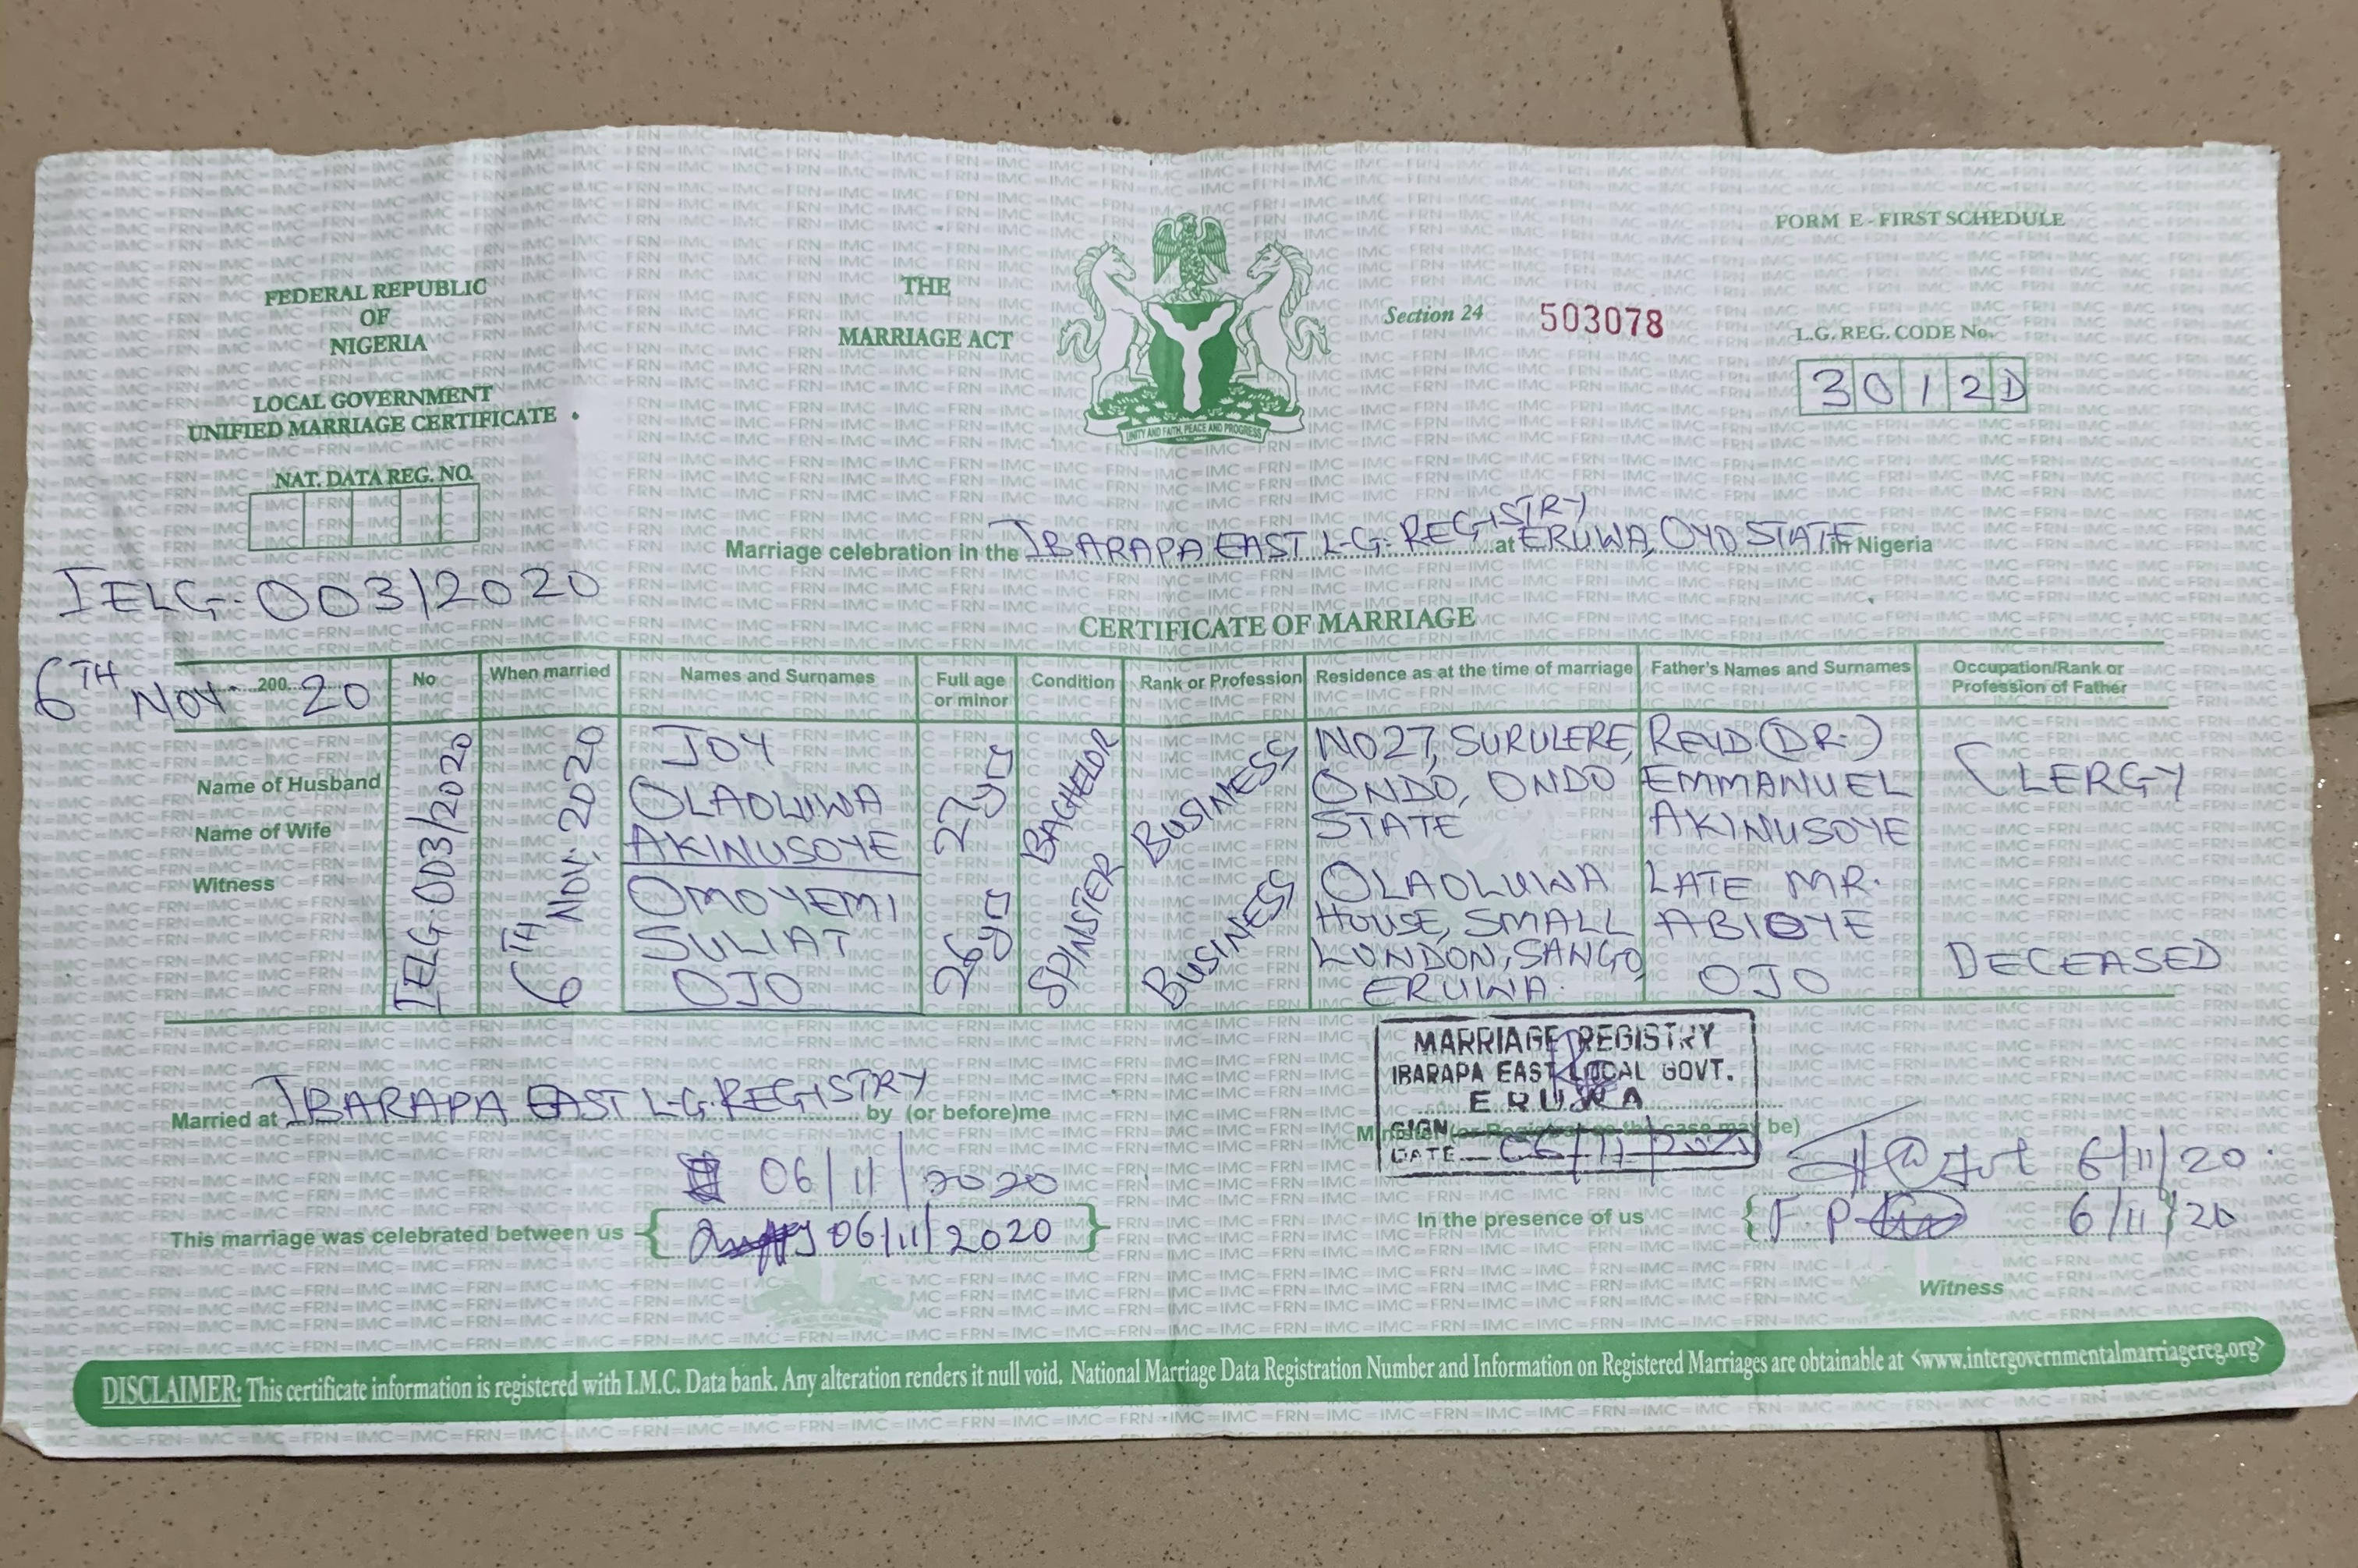 FORM E - FIRST SCHEDULE
FEDERAL REPUBLIC
OF
NIGERIA
LOCAL GOVERNMENT
UNIFIED MARRIAGE CERTIFICATE
NAT. DATA REG. NO.
THE
MARRIAGE ACT
UNITY AND FAITH, PEACE AND PROGRESS
Section 24 503078
L.G. REG. CODE No.
3012D
Marriage celebration in the IBARAPA EAST L.G. REGISTRY at ERUWA, OYO STATE in Nigeria
IELG-003/2020
CERTIFICATE OF MARRIAGE
6TH NOV. 200 20
No
When married
Names and Surnames
Full age or minor
Condition
Rank or Profession
Residence as at the time of marriage
Father's Names and Surnames
Occupation/Rank or Profession of Father
Name of Husband
Name of Wife
Witness
IELG-003/2020
6TH NOV. 2020
JOY
OLAOLUWA
AKINUSOYE
27yrs
BACHELOR
BUSINESS
NO27, SURULERE,
ONDO, ONDO
STATE
REVD (DR.)
EMMANUEL
AKINUSOYE
CLERGY
OMOYEMI
SULIAT
OJO
26yrs
SPINSTER
BUSINESS
OLAOLUWA
HOUSE, SMALL
LONDON, SANGO,
ERUWA.
LATE MR.
ABIOYE
OJO
DECEASED
Married at IBARAPA EAST L.G. REGISTRY by (or before)me
MARRIAGE REGISTRY
IBARAPA EAST LOCAL GOVT.
ERUWA
SIGN
DATE 06/11/2020
be)
06/11/2020
6/11/20
This marriage was celebrated between us 06/11/2020
In the presence of us F. P 6/11/20
Witness
DISCLAIMER: This certificate information is registered with I.M.C. Data bank. Any alteration renders it null void. National Marriage Data Registration Number and Information on Registered Marriages are obtainable at <www.intergovernmentalmarriagereg.org>